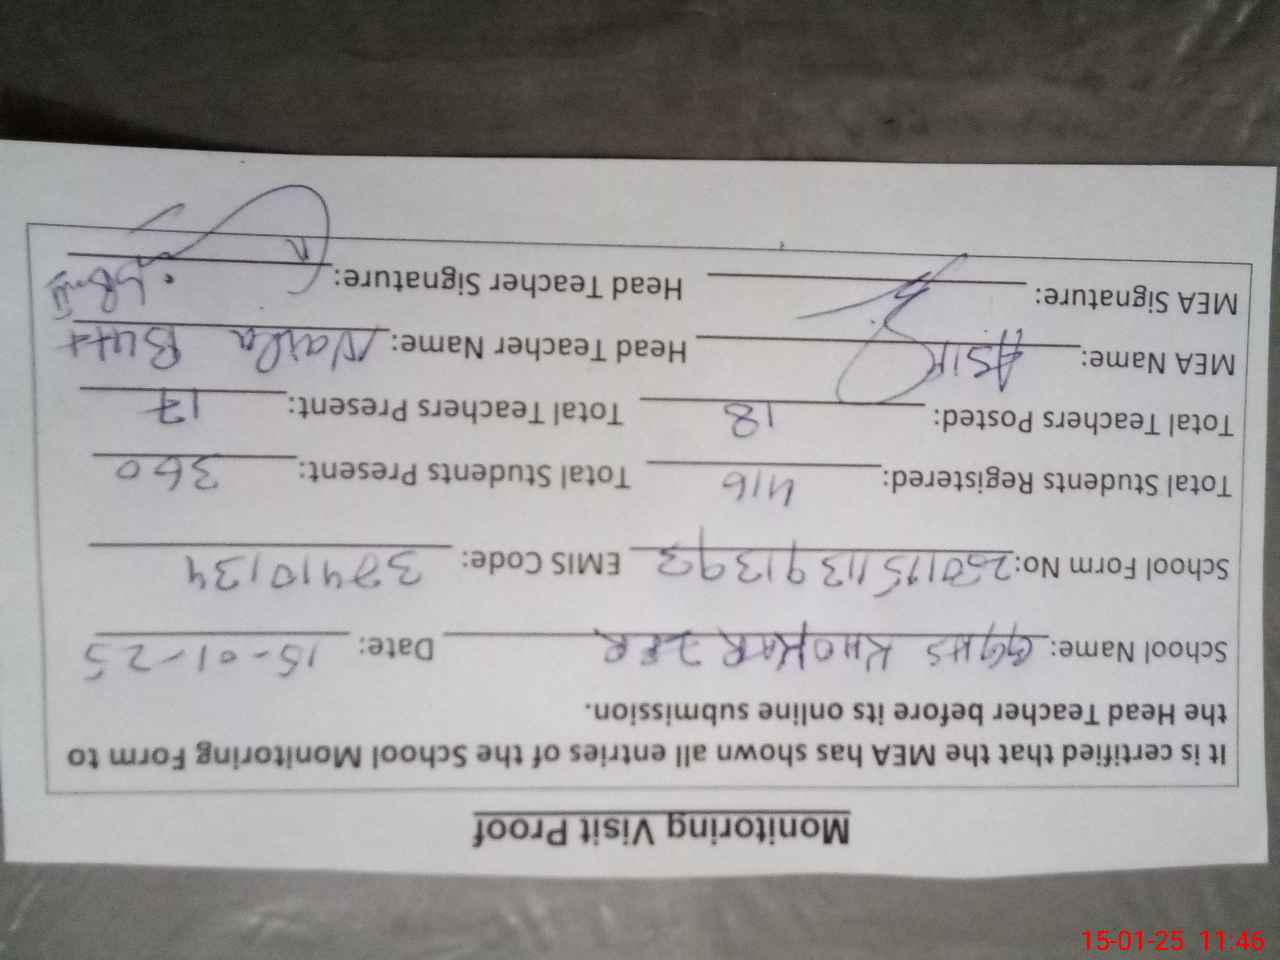 Monitoring Visit Proof
It is certified that the MEA has shown all entries of the School Monitoring Form to
the Head Teacher before its online submission.
School Name: GGHS KHOKAR ZER Date: 15-01-25
School Form No: EMIS Code: 37410134
Total Students Registered: 416 Total Students Present: 360
Total Teachers Posted: 18 Total Teachers Present: 17
MEA Name: ASIF Head Teacher Name: Naila Butt
MEA Signature: Head Teacher Signature:
15-01-25 11:46